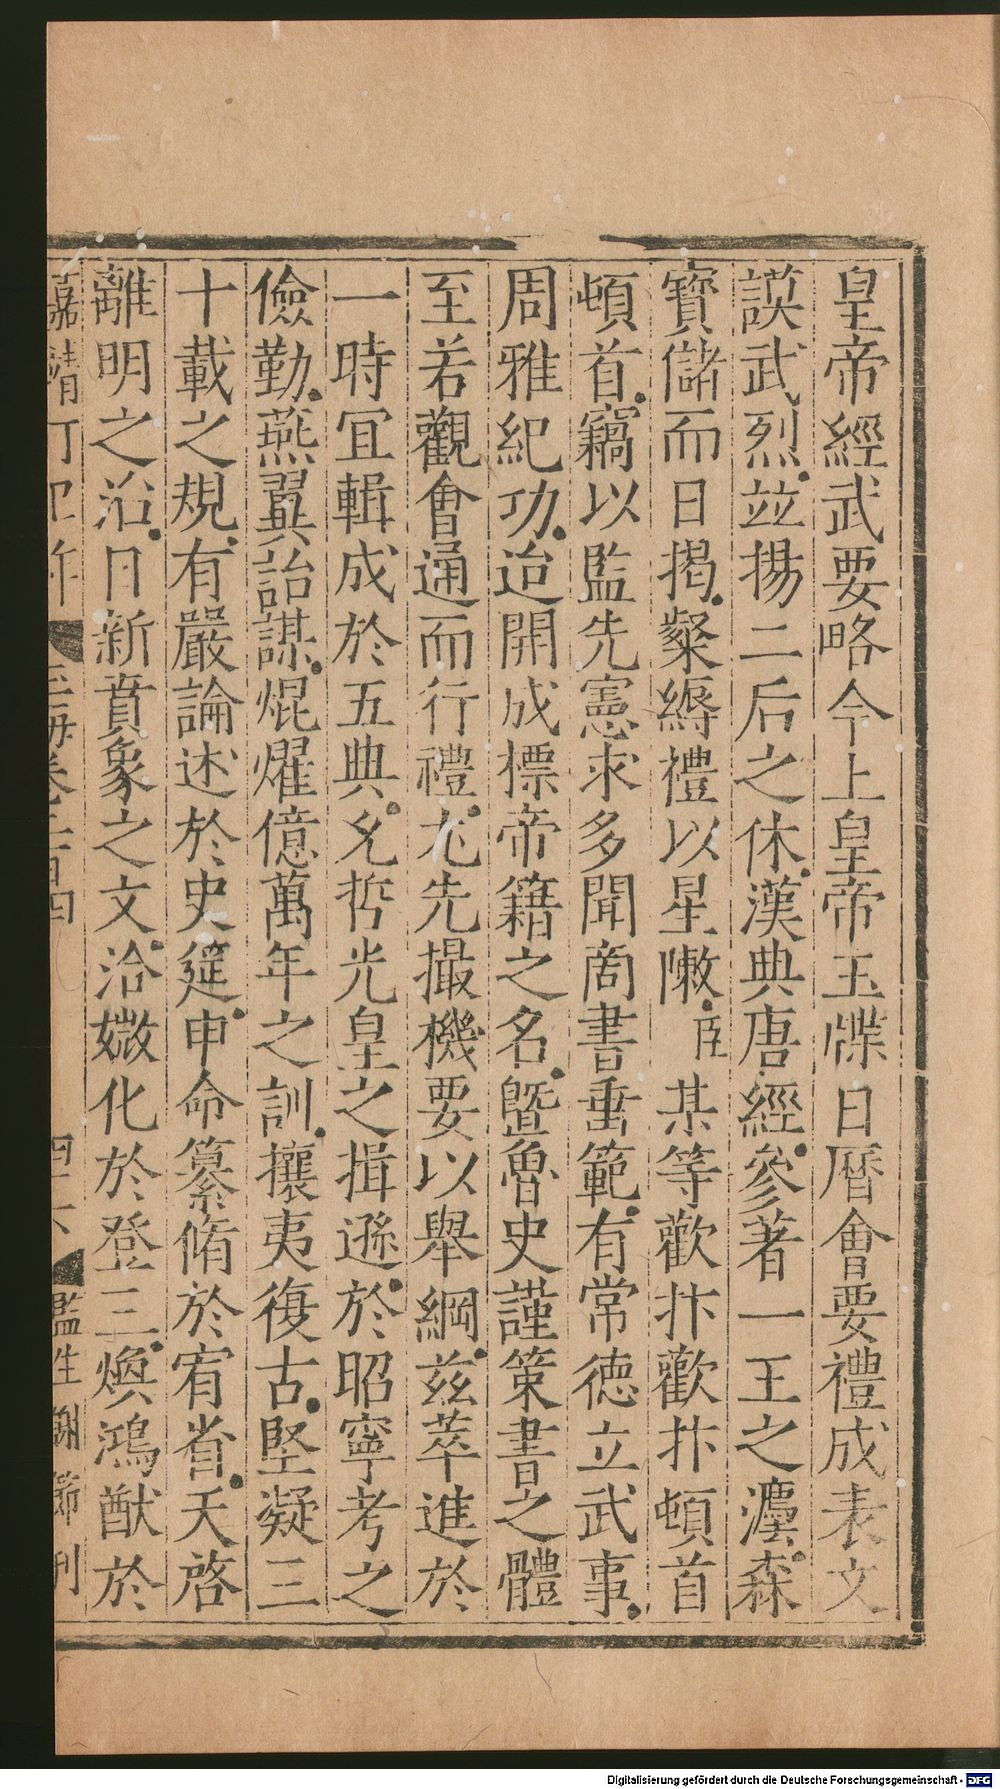 皇帝經武要略今上皇帝玉牒日曆會要禮成表文
謨武烈並揚二后之休漢典唐經參著一王之灋森
寶儲而日揭粲縟禮以星敶臣某等歡抃歡抃頓首
頓首竊以監先憲求多聞商書垂範有常德立武事
周雅紀功迨開成標帝籍之名曁魯史謹策書之體
至若觀會通而行禮尤先撮機要以舉綱茲萃進於
一時宜輯成於五典允哲光皇之揖遜於昭寧考之
儉勤燕翼詒謀焜燿億萬年之訓攘夷復古堅凝三
十載之規有嚴論述於史筵申命纂脩於宥省天啓
離明之沿日新賁象之文洽媺化於登三煥鴻猷於
嘉靖丁巳年 玉海卷二百四 四十六 監生謝節刊
Digitalisierung gefördert durch die Deutsche Forschungsgemeinschaft - DFG